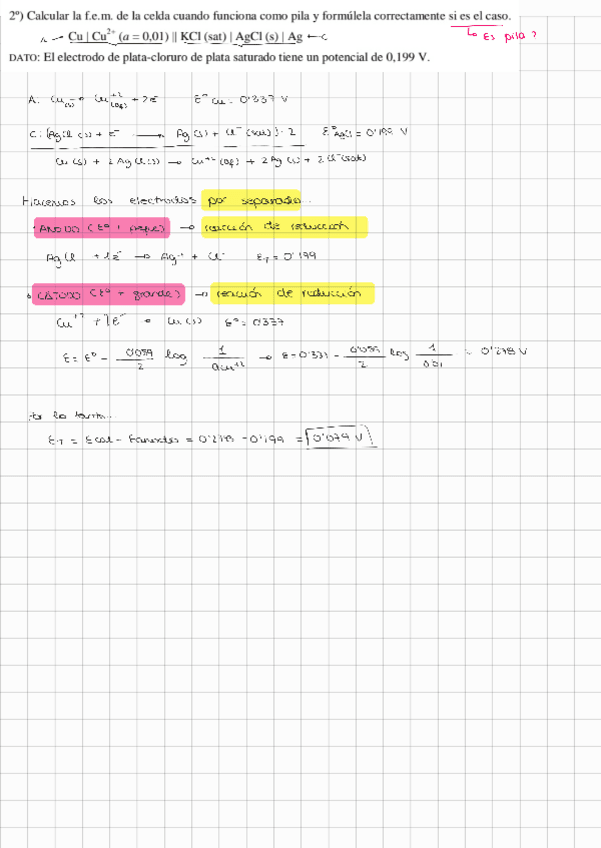 2º) Calcular la f.e.m. de la celda cuando funciona como pila y formúlela correctamente si es el caso.
↳ Es pila?
A ← Cu | Cu²⁺ (a = 0,01) || KCl (sat) | AgCl (s) | Ag ← C
DATO: El electrodo de plata-cloruro de plata saturado tiene un potencial de 0,199 V.
A: Cu(s) → Cu⁺²(aq) + 2e⁻ E° Cu: 0'337 V
C: (AgCl (s) + e⁻ → Ag (s) + Cl⁻ (sat)) · 2 E°AgCl = 0'199 V
Cu (s) + 2 AgCl (s) → Cu⁺² (aq) + 2 Ag (s) + 2 Cl⁻ (sat)
Hacemos los electrodos por separado...
· ANODO (Eº + peque) → reacción de reducción
AgCl + 1e⁻ → Ag + Cl⁻ E₁ = 0'199
· CÁTODO (Eº + grande) → reacción de reducción
Cu⁺² + 2e⁻ → Cu (s) E° = 0'337
E = E° - 0'059/2 log 1/aCu⁺² → E = 0'337 - 0'059/2 log 1/0'01 = 0'278 V
Por lo tanto...
E T = E cat - E = 0'278 - 0'199 = 0'079 V